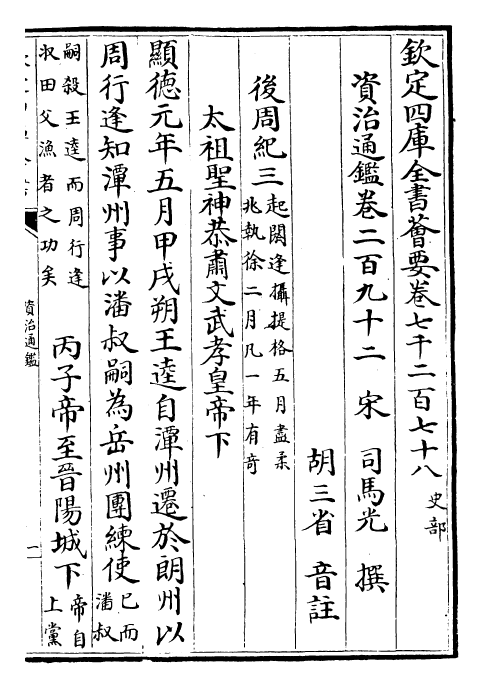 欽定四庫全書薈要卷七千二百七十八 史部
資治通鑑卷二百九十二 宋 司馬光 撰
胡三省 音註
後周紀三 起閼逢攝提格五月盡柔
兆執徐二月凡一年有奇
太祖聖神恭肅文武孝皇帝下
顯德元年五月甲戌朔王逵自潭州遷於朗州以
周行逢知潭州事以潘叔嗣為岳州團練使 已而
潘叔
嗣殺王逵而周行逢
収田父漁者之功矣
丙子帝至晉陽城下 帝自
上黨
資治通鑑
一